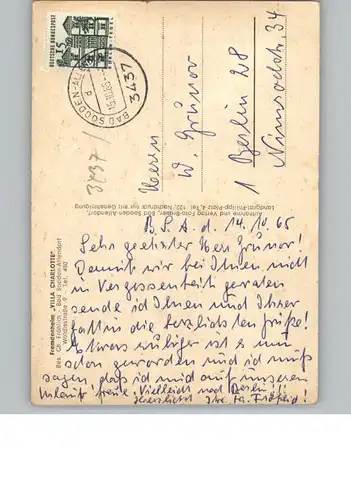 DEUTSCHE BUNDESPOST
15
BAD SOODEN-ALLE
3437
Herrn
W. Grunor
1 Berlin 28
Nimrodstr. 34
3437
Aufnahme und Verlag Foto-Bad Sooden-Allendorf,
Landgraf-Philipp-Platz 4, Tel. 122, Nachdruck nur mit Genehmigung
Fremdenheim „VILLA CHARLOTTE"
Bes. Ch. Frölich · Bad Sooden-Allendorf
Waldisstraße 9 · Tel. 492
B. S. A. d. 14. 10. 65
Sehr geehrter Herr Grunor!
Damit wir bei Ihnen nicht
in Vergessenheit geraten
sende ich Ihnen und Ihrer
Gattin die herzlichsten Grüße!
Etwas ruhiger ist es nun
schon geworden und ich muß
sagen, daß ich mich auf unseren
Urlaub freue. Vielleicht nach Berlin!!
Herzlichst Ihre